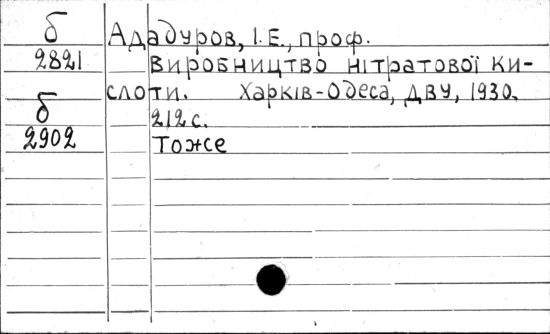 б
Ададуров, І.Е., проф.
2821
Виробництво нітратової ки-
слоти. Харків-Одеса, ДВУ, 1930.
б
212 с.
2902
Тоже